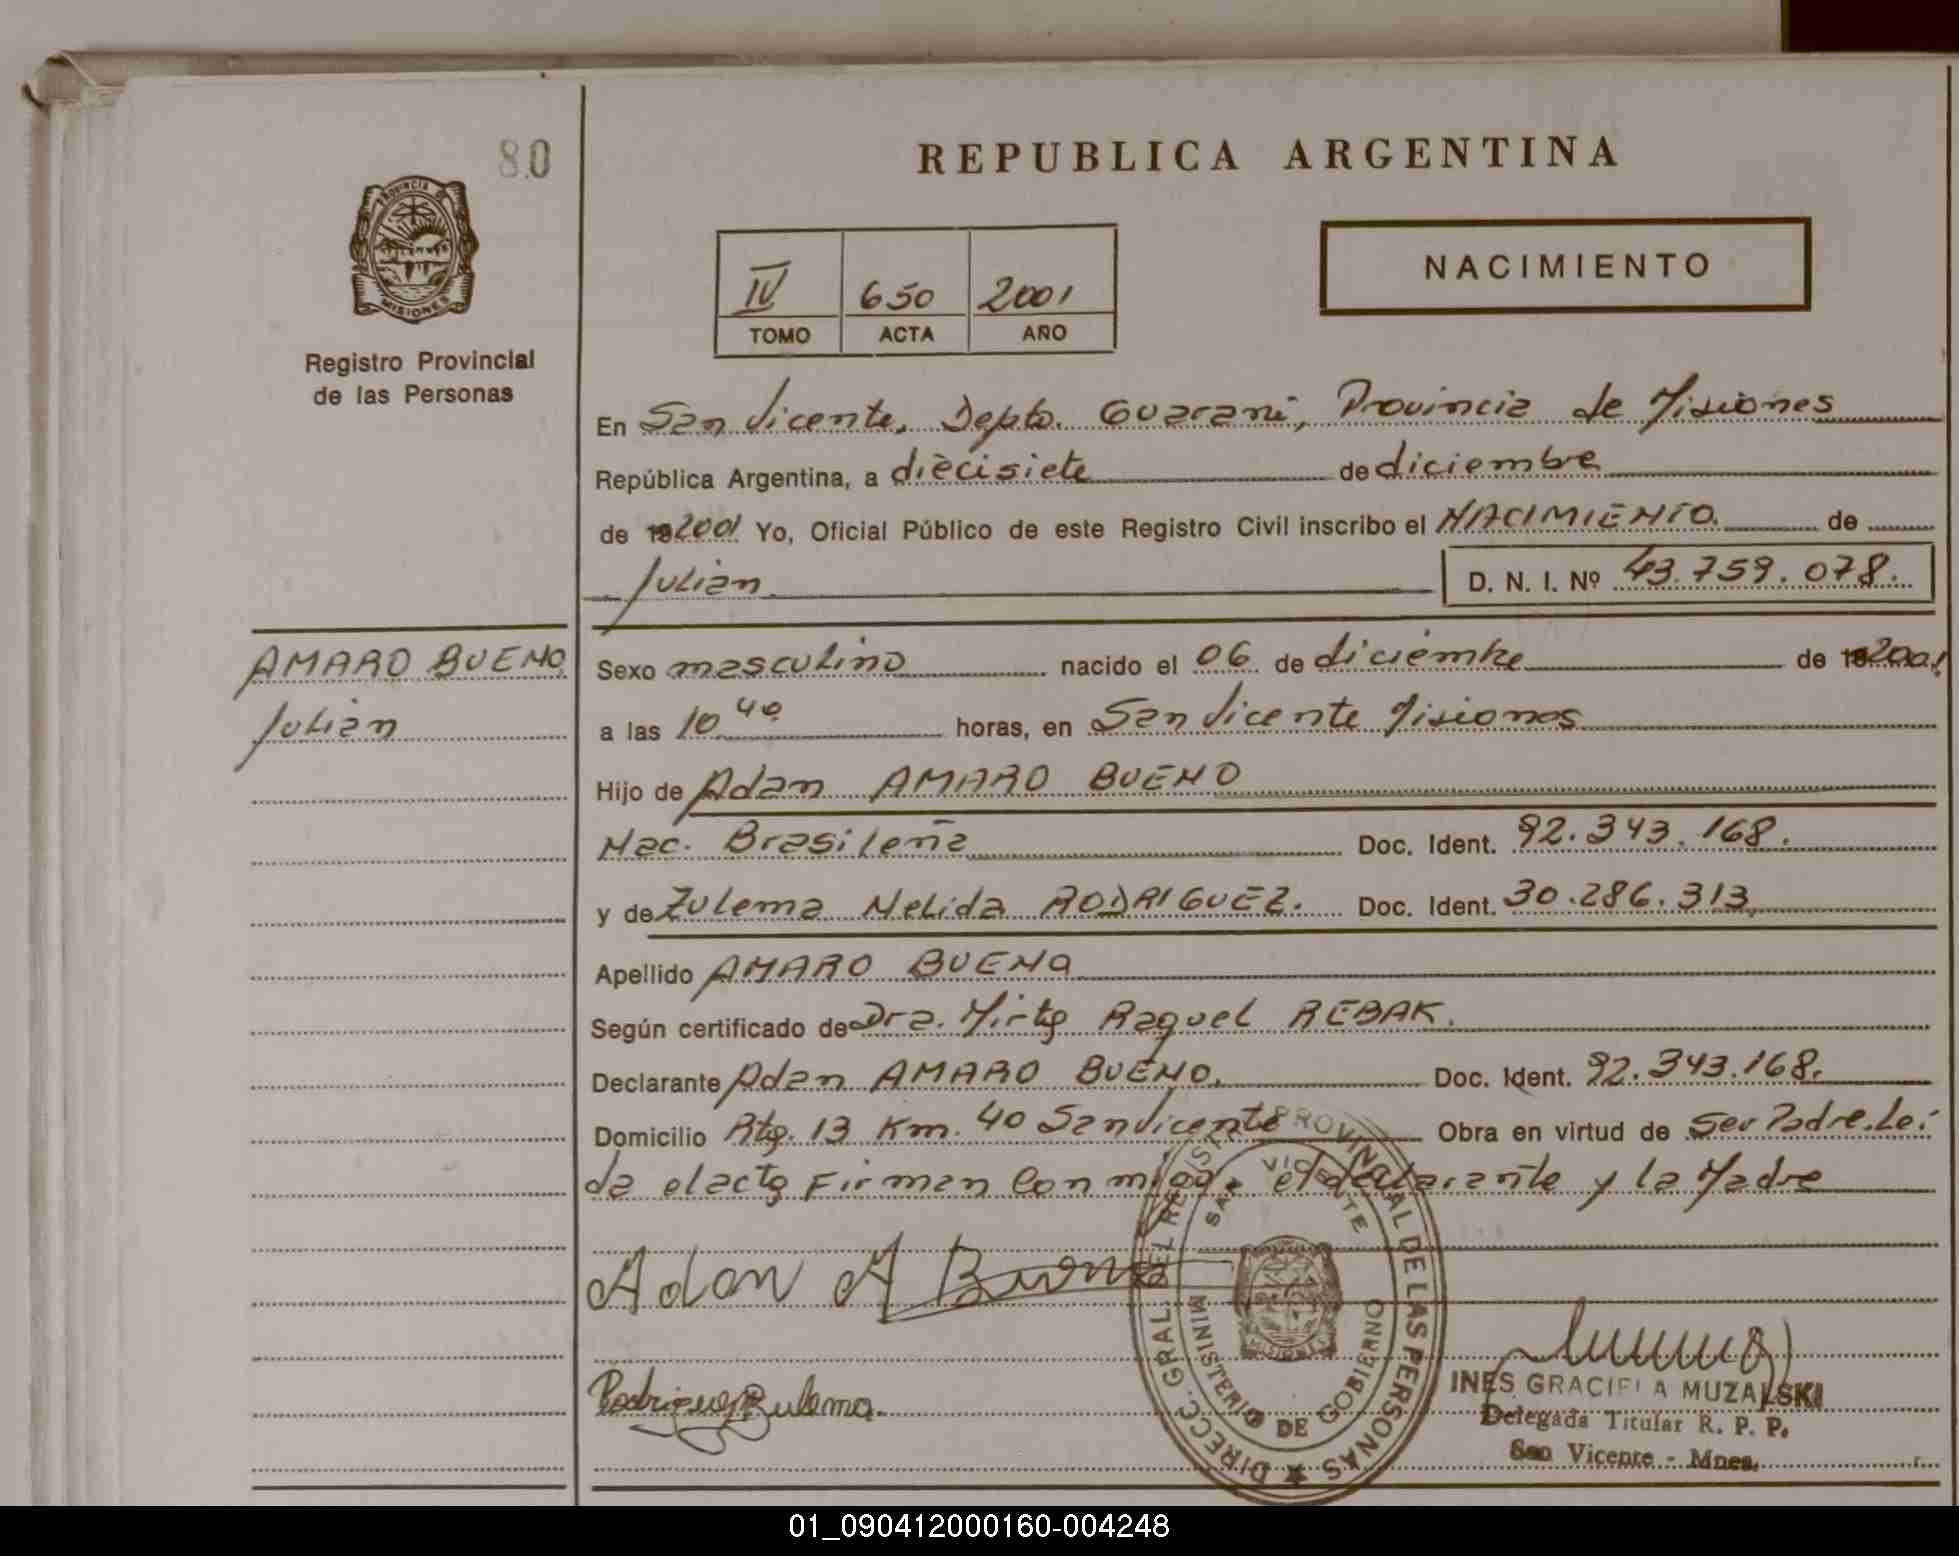 80
REPUBLICA ARGENTINA
PROVINCIA DE
MISIONES
Registro Provincial
de las Personas
IV 650 2001
TOMO ACTA AÑO
NACIMIENTO
En San Vicente, Depto. Guaraní, Provincia de Misiones
República Argentina, a diecisiete de diciembre
de 192001 Yo, Oficial Público de este Registro Civil inscribo el NACIMIENTO. de
Julian D. N. I. Nº 43.759.078.
AMARO BUENO
Julian
Sexo masculino nacido el 06 de diciembre de 192001
a las 10 40 horas, en San Vicente Misiones
Hijo de Adan AMARO BUENO
Nac. Brasileña Doc. Ident. 92.343.168.
y de Zulema Nelida RODRIGUEZ. Doc. Ident. 30.286.313
Apellido AMARO BUENO
Según certificado de Dra. Mirta Raquel REBAK.
Declarante Adan AMARO BUENO. Doc. Ident. 92.343.168.
Domicilio Rta. 13 Km. 40 San Vicente Obra en virtud de Ser Padre. Leí
da el acta Firman Conmigo, el declarante y la Madre
Adan A Bueno
Rodriguez Zulema.
DIRECC. GRAL. DEL REGISTRO PROVINCIAL DE LAS PERSONAS
SAN VICENTE
MISIONES
MINISTERIO DE GOBIERNO
INES GRACIELA MUZALSKI
Delegada Titular R. P. P.
San Vicente - Mnes.
01_090412000160-004248